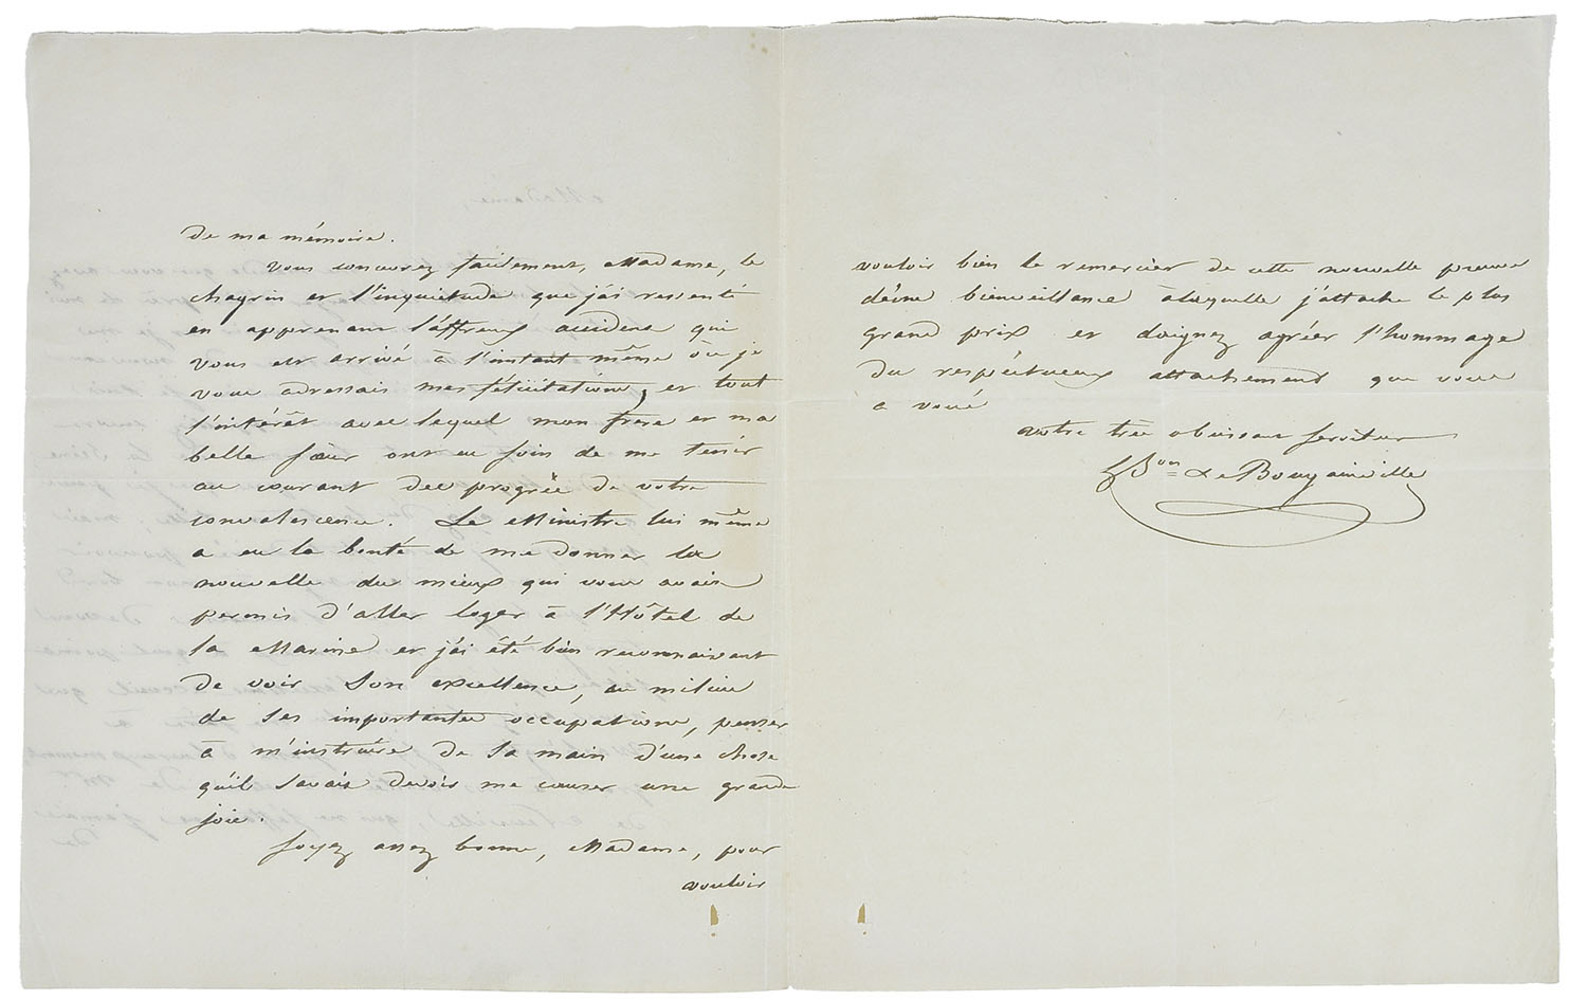 de ma mémoire.
Vous concevrez facilement, Madame, le
chagrin et l'inquiétude que j'ai ressenti
en apprenant l'affreux accident qui
vous est arrivé à l'instant même où je
vous adressais mes félicitations, et tout
l'intérêt avec lequel mon frère et ma
belle sœur ont eu soin de me tenir
au courant des progrès de votre
convalescence. Le Ministre lui même
a eu la bonté de me donner la
nouvelle du mieux qui vous avait
permis d'aller loger à l'Hôtel de
la Marine et j'ai été bien reconnaissant
de voir Son excellence, au milieu
de ses importantes occupations, penser
à m'instruire de sa main d'une chose
qu'il savait devoir me causer une grande
joie.
Soyez assez bonne, Madame, pour
vouloir
vouloir bien le remercier de cette nouvelle preuve
d'une bienveillance à laquelle j'attache le plus
grand prix et daignez agréer l'hommage
du respectueux attachement que vous
a voué
votre très obéissant serviteur
Bon de Bougainville